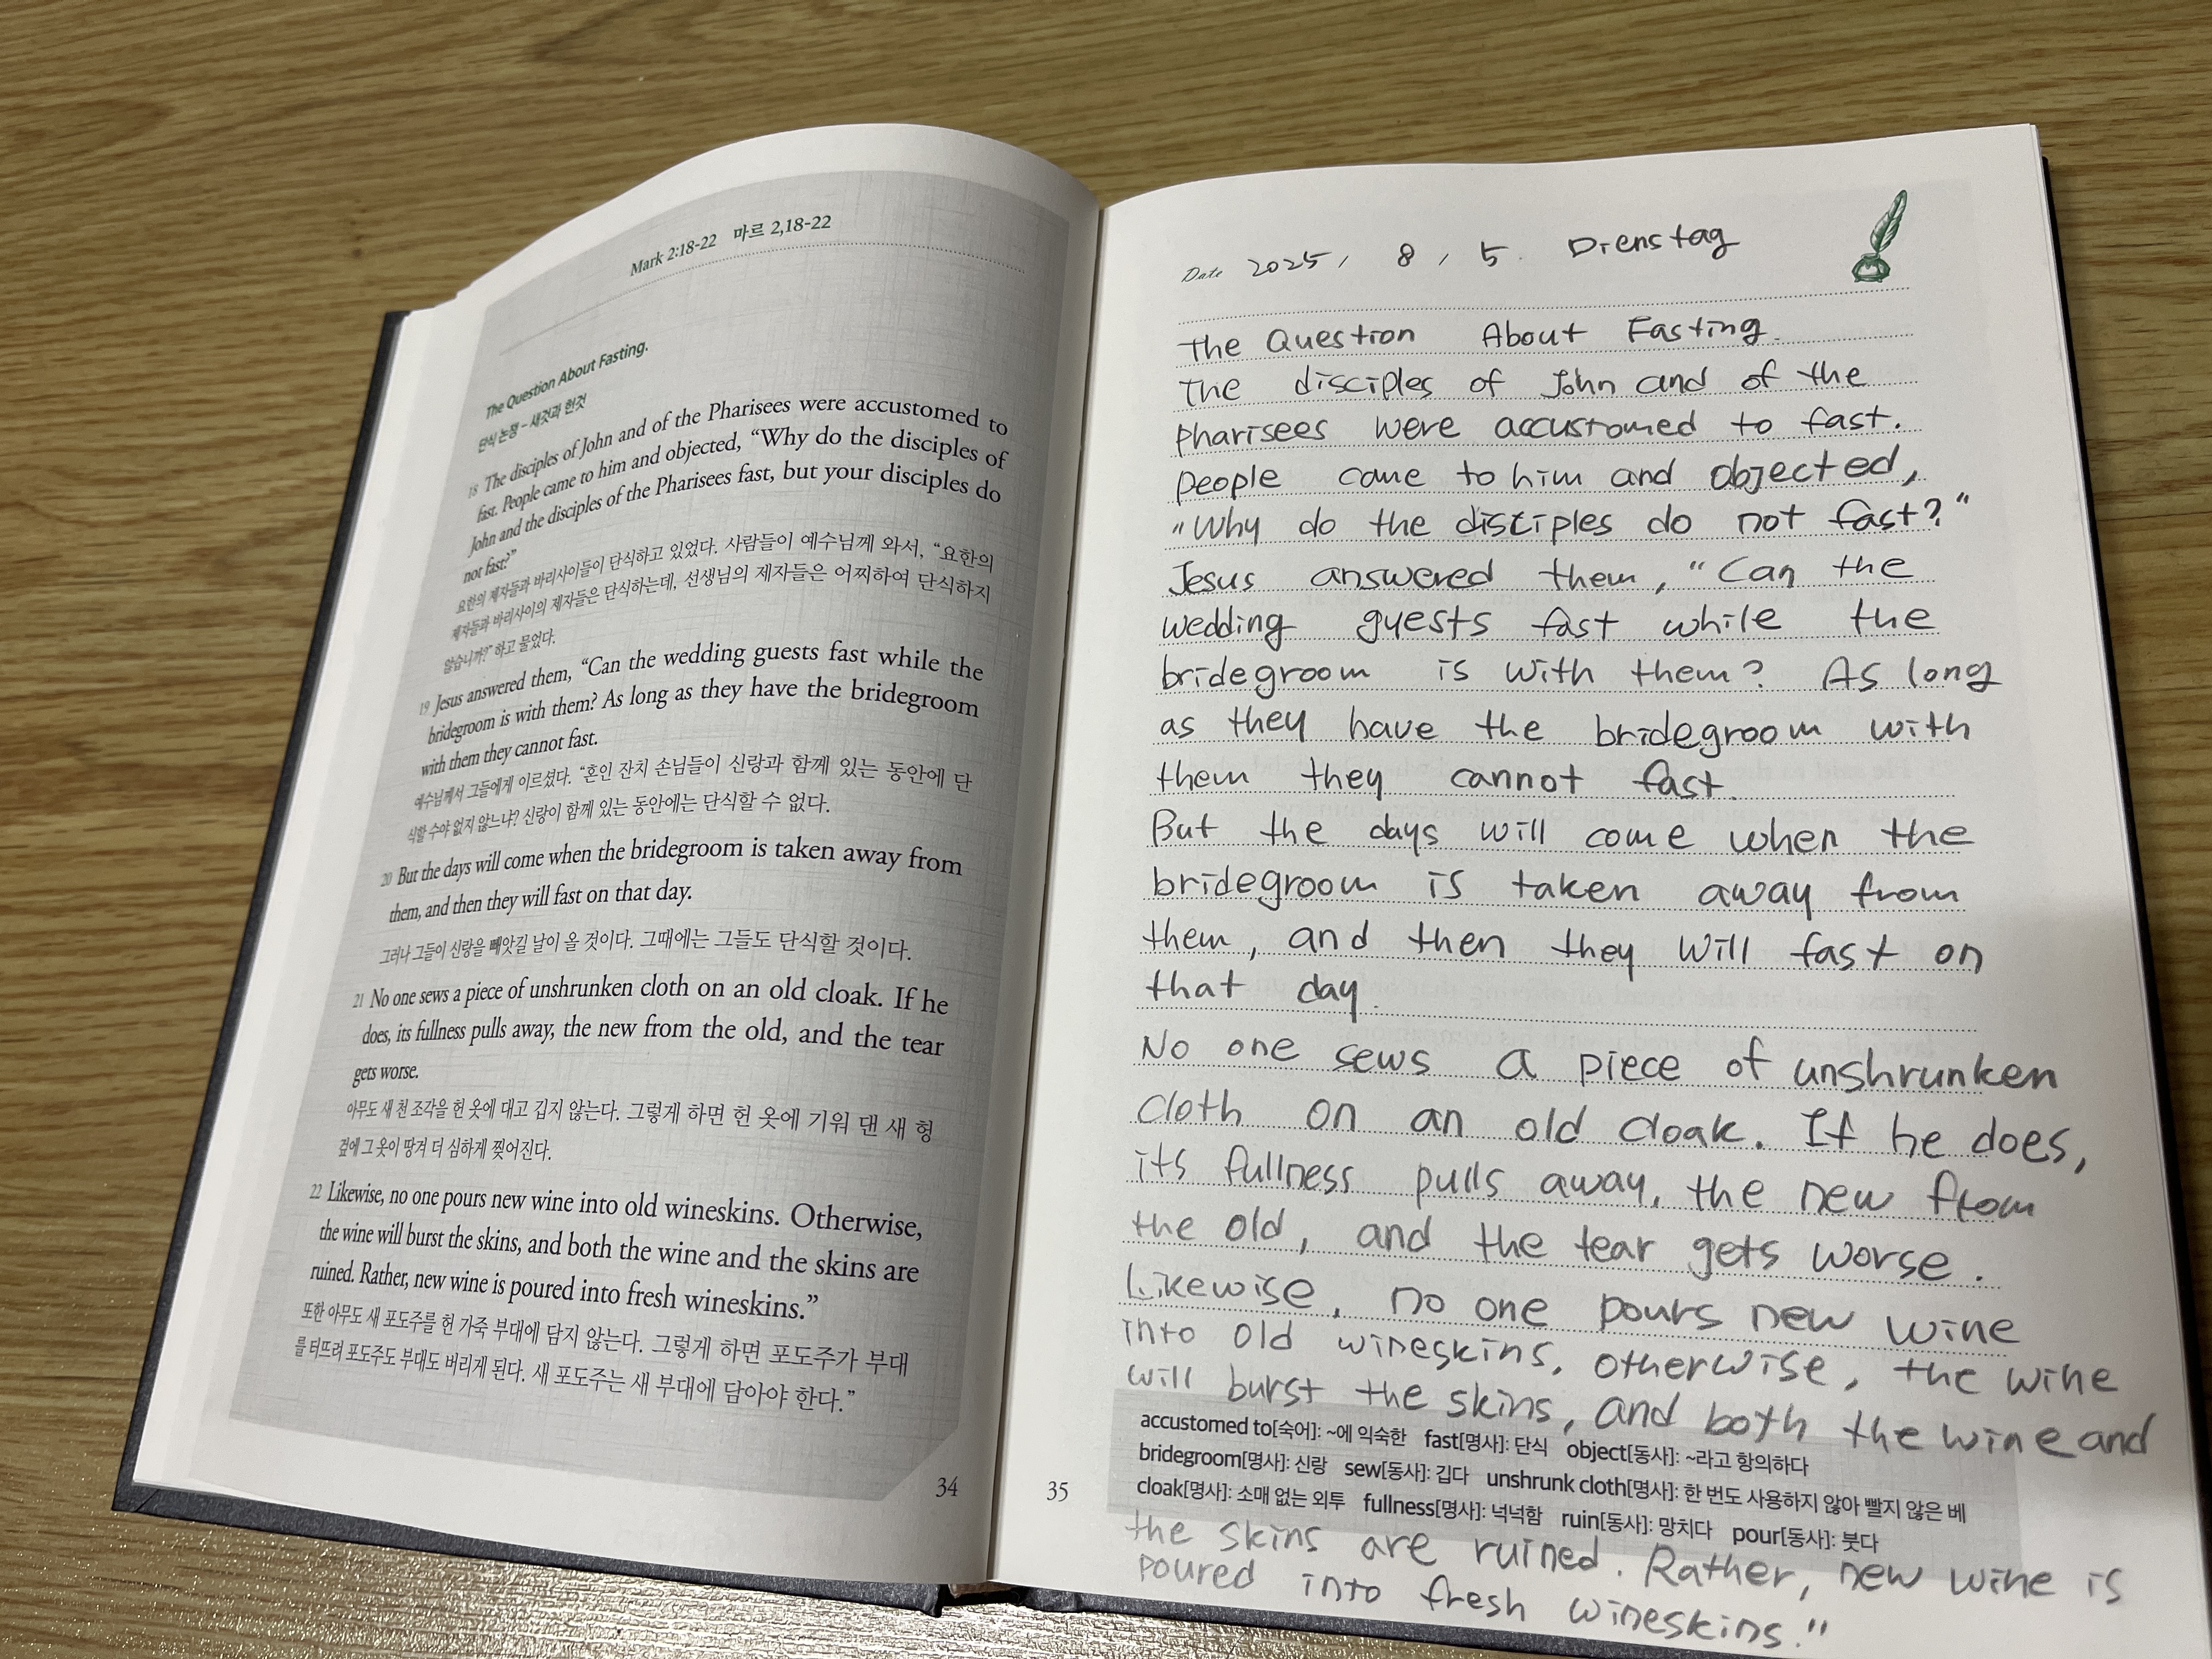 Mark 2:18-22 마르 2,18-22
The Question About Fasting.
단식 논쟁 – 새것과 헌것
18 The disciples of John and of the Pharisees were accustomed to
fast. People came to him and objected, “Why do the disciples of
John and the disciples of the Pharisees fast, but your disciples do
not fast?”
요한의 제자들과 바리사이들이 단식하고 있었다. 사람들이 예수님께 와서, “요한의
제자들과 바리사이의 제자들은 단식하는데, 선생님의 제자들은 어찌하여 단식하지
않습니까?” 하고 물었다.
19 Jesus answered them, “Can the wedding guests fast while the
bridegroom is with them? As long as they have the bridegroom
with them they cannot fast.
예수님께서 그들에게 이르셨다. “혼인 잔치 손님들이 신랑과 함께 있는 동안에 단
식할 수야 없지 않느냐? 신랑이 함께 있는 동안에는 단식할 수 없다.
20 But the days will come when the bridegroom is taken away from
them, and then they will fast on that day.
그러나 그들이 신랑을 빼앗길 날이 올 것이다. 그때에는 그들도 단식할 것이다.
21 No one sews a piece of unshrunken cloth on an old cloak. If he
does, its fullness pulls away, the new from the old, and the tear
gets worse.
아무도 새 천 조각을 헌 옷에 대고 깁지 않는다. 그렇게 하면 헌 옷에 기워 댄 새 헝
겊에 그 옷이 땅겨 더 심하게 찢어진다.
22 Likewise, no one pours new wine into old wineskins. Otherwise,
the wine will burst the skins, and both the wine and the skins are
ruined. Rather, new wine is poured into fresh wineskins.”
또한 아무도 새 포도주를 헌 가죽 부대에 담지 않는다. 그렇게 하면 포도주가 부대
를 터뜨려 포도주도 부대도 버리게 된다. 새 포도주는 새 부대에 담아야 한다.”
34
Date 2025, 8, 5. Dienstag
The Question About Fasting.
The disciples of John and of the
Pharisees were accustomed to fast.
People came to him and objected,
“Why do the disciples do not fast?”
Jesus answered them, “Can the
wedding guests fast while the
bridegroom is with them? As long
as they have the bridegroom with
them they cannot fast.
But the days will come when the
bridegroom is taken away from
them, and then they will fast on
that day.
No one sews a piece of unshrunken
cloth on an old cloak. If he does,
its fullness pulls away, the new from
the old, and the tear gets worse.
Likewise, no one pours new wine
into old wineskins. Otherwise, the wine
will burst the skins, and both the wine and
accustomed to[숙어]: ~에 익숙한 fast[명사]: 단식 object[동사]: ~라고 항의하다
bridegroom[명사]: 신랑 sew[동사]: 깁다 unshrunk cloth[명사]: 한 번도 사용하지 않아 빨지 않은 베
cloak[명사]: 소매 없는 외투 fullness[명사]: 넉넉함 ruin[동사]: 망치다 pour[동사]: 붓다
the skins are ruined. Rather, new wine is
poured into fresh wineskins.”
35